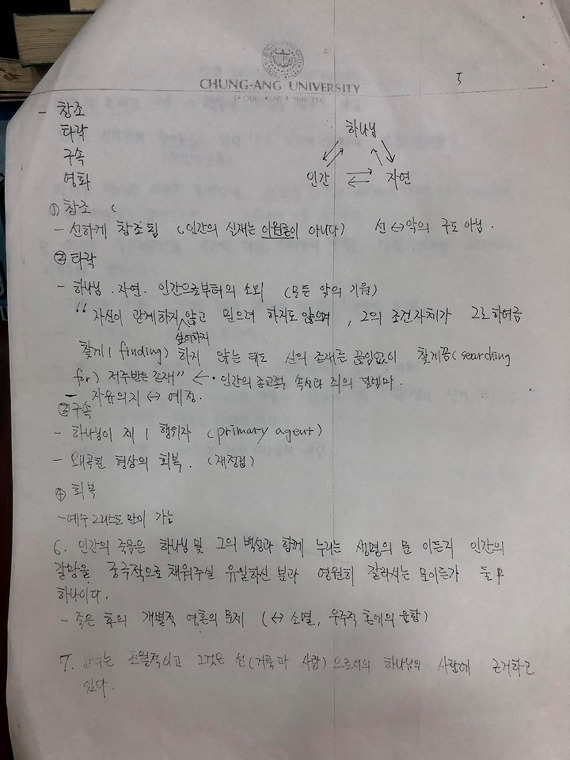 CHUNG-ANG UNIVERSITY
5
- 창조
타락
구속
영화
하나님
인간 자연
① 창조 (
- 선하게 창조됨 (인간의 실재는 이원론이 아니다) 선 ↔ 악의 구도 아님.
② 타락
- 하나님. 자연. 인간으로부터의 소외 (모든 악의 기원)
"자신이 관계하지 않고 믿으려 하지도 않으며, 그의 조건자체가 그로 하여금
찾게 (finding) 하지 않는 때도 신의 존재는 끊임없이 찾게끔 (searching
for) 저주받은 존재" ← · 인간의 종교적 속성과 죄의 딜레마.
- 자유의지 ↔ 예정.
③ 구속
- 하나님이 제 1 행위자 (primary agent)
- 왜곡된 형상의 회복. (재정립)
④ 회복
- 예수 그리스도만이 가능
6. 인간의 죽음은 하나님 및 그의 백성과 함께 누리는 생명의 문 이든지 인간의
갈망을 궁극적으로 채워주실 유일하신 분과 영원히 갈라서는 문이든가 둘 中
하나이다.
- 죽은 후의 개별적 영혼의 문제 (↔ 소멸, 우주적 혼에의 융합)
7. 는 초월적이고 그것은 선 (거룩과 사랑) 으로서의 하나님의 사랑에 근거하고
있다.